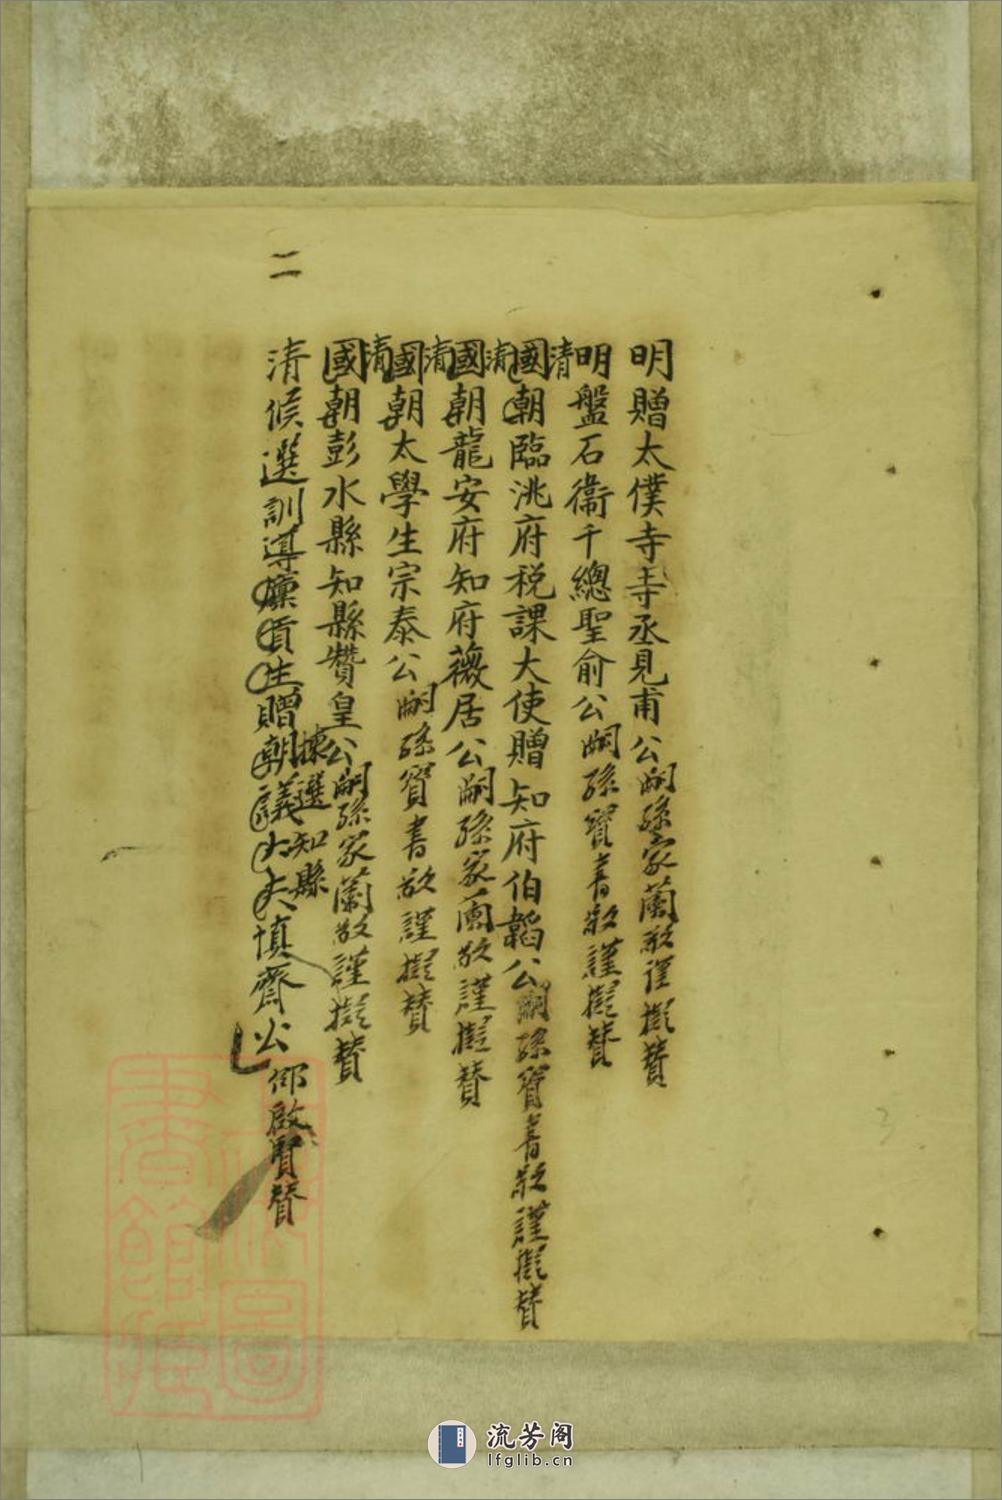 明贈太僕寺寺丞見甫公嗣孫家蘭敬謹擬贊
明盤石衞千總聖俞公嗣孫寶書敬謹擬贊
清
國朝臨洮府税課大使贈知府伯韜公嗣孫寶書敬謹擬贊
清
國朝龍安府知府薇居公嗣孫家蘭敬謹擬贊
清
國朝太學生宗泰公嗣孫寶書敬謹擬贊
清
國朝彭水縣知縣贊皇公嗣孫家蘭敬謹擬贊
揀選知縣
清候選訓導廩貢生贈朝議大夫慎齋公邵啟賢贊
二
上海圖書館藏
流芳阁
lfglib.cn